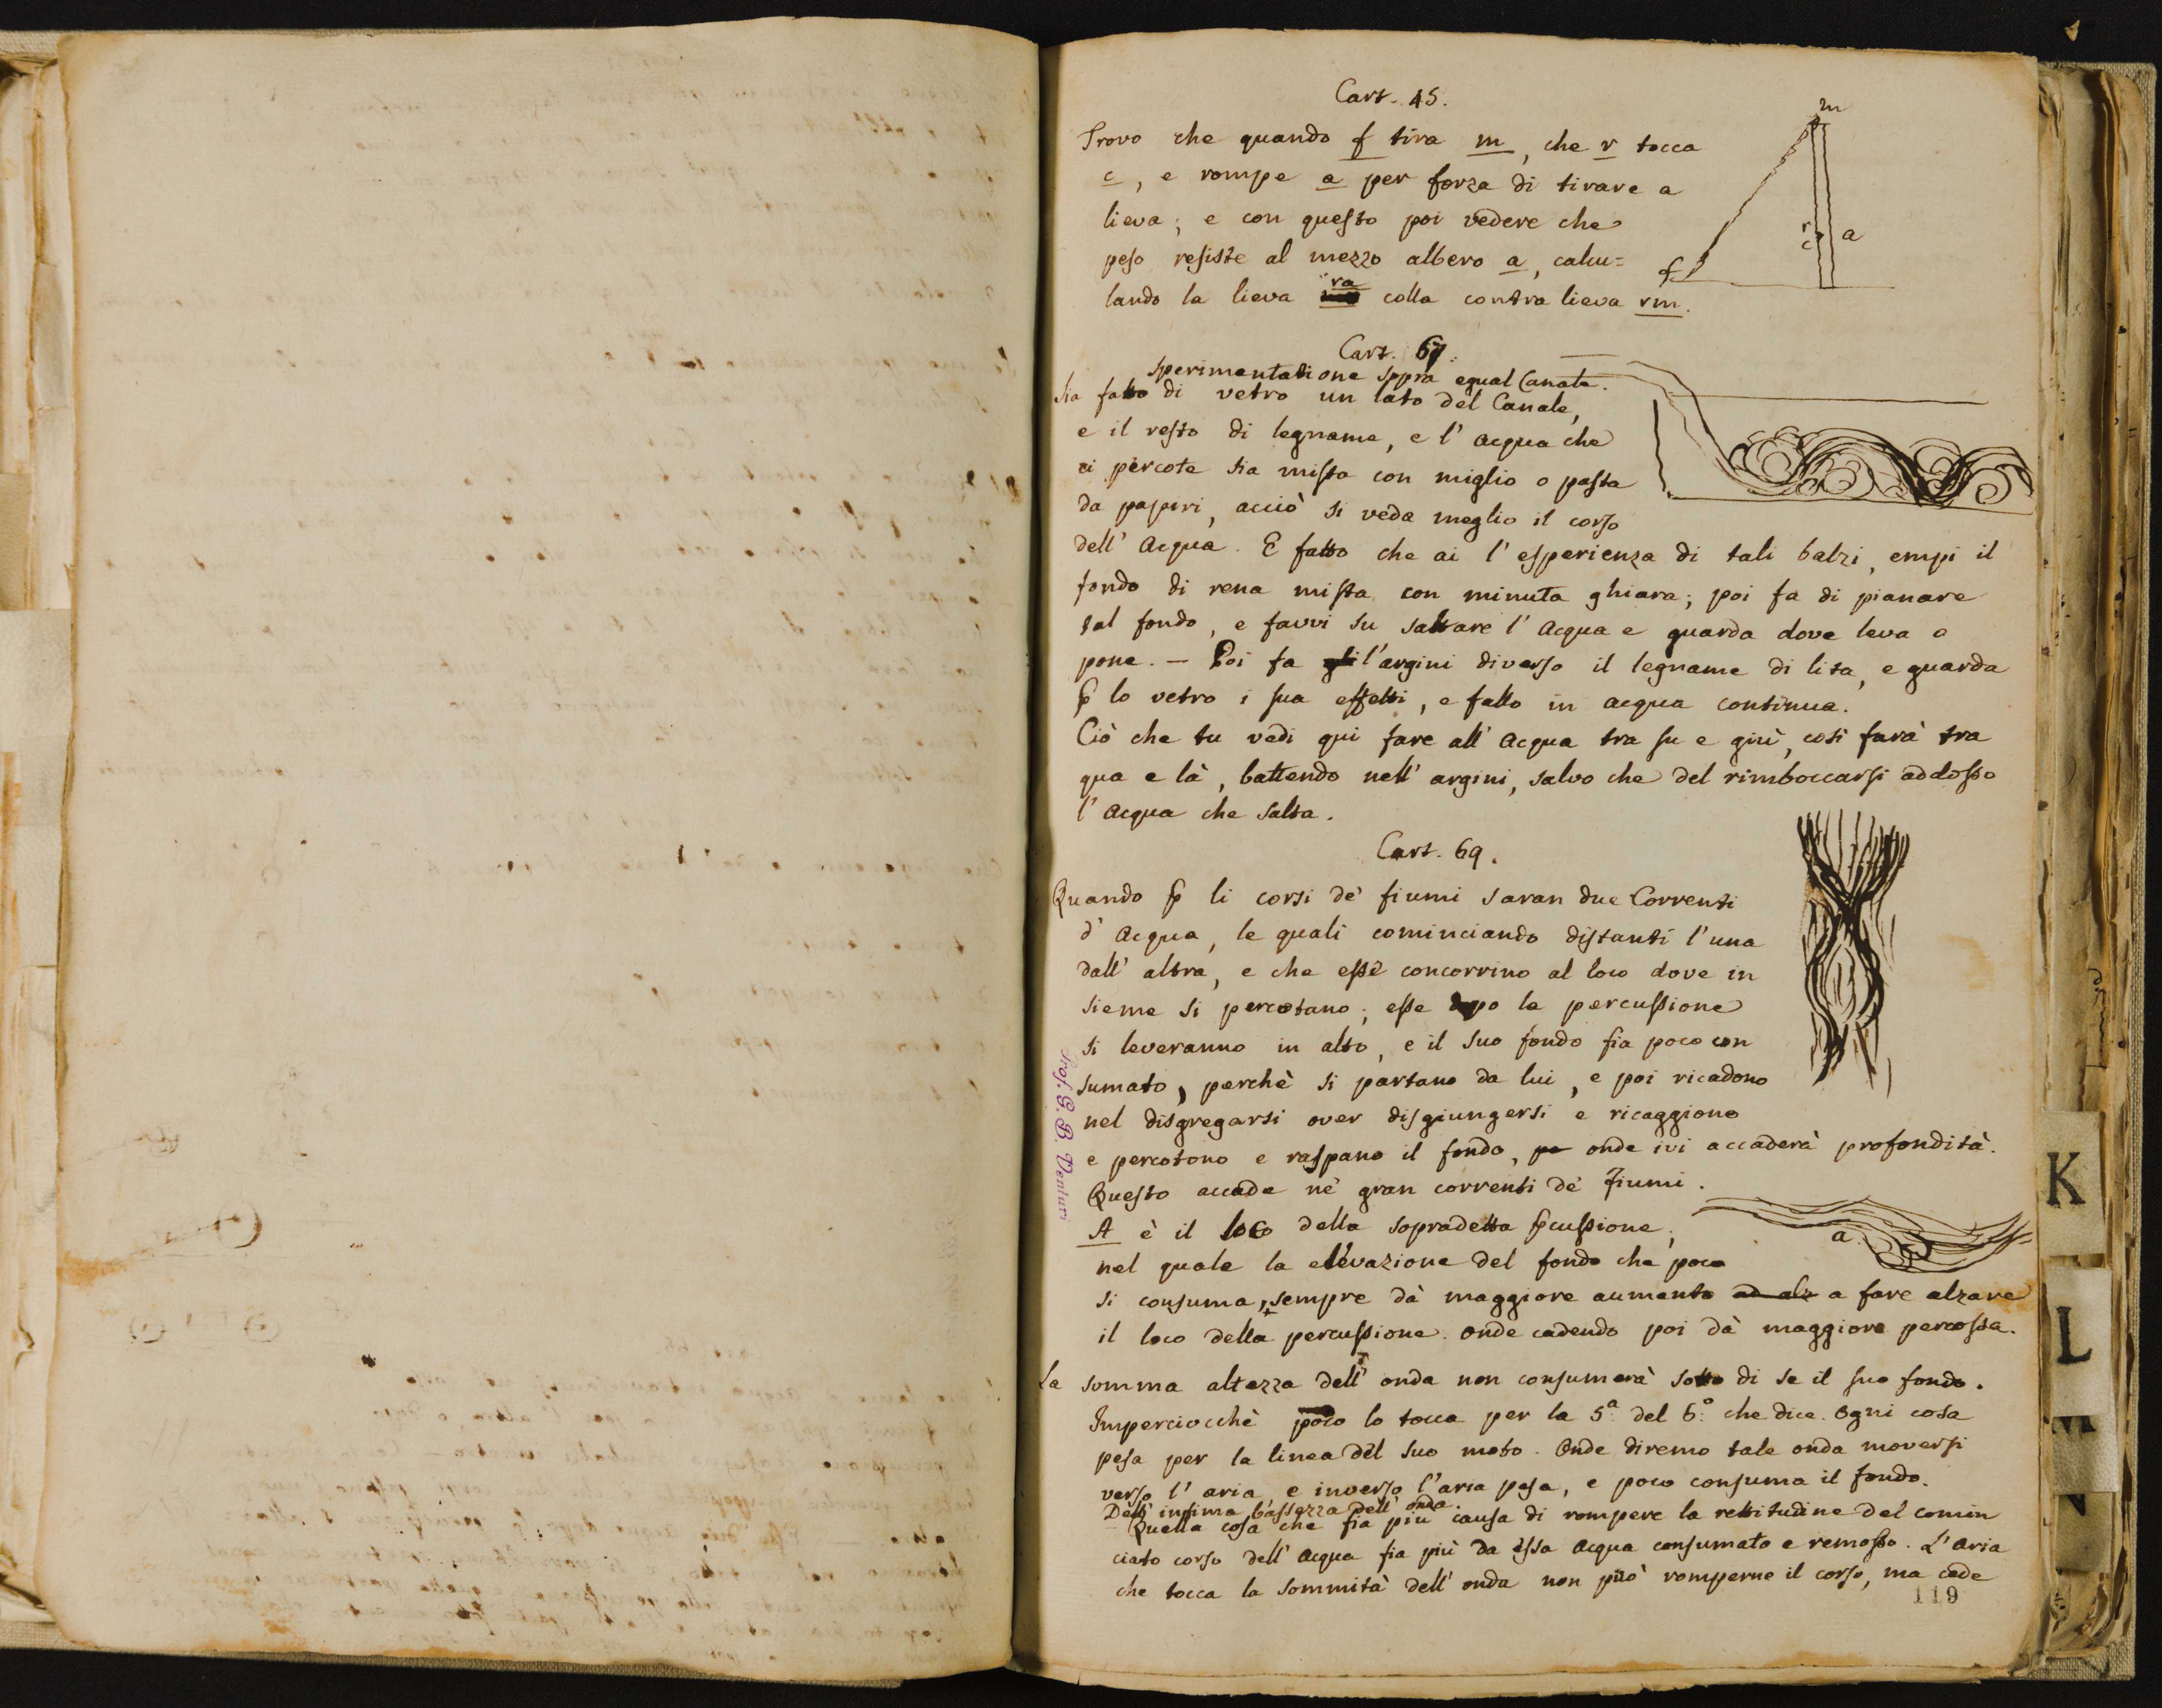 Cart. 45.
Trovo che quando f tira m, che r tocca
c, e rompe a per forza di tirare a
lieva; e con questo poi vedere che
peso resiste al mezzo albero a, calcu=
lando la lieva ra colla contra lieva rm.
m
r
c
a
f
Cart. 67.
Sperimentatione sopra equal Canale.
Sia fatto di vetro un lato del Canale,
e il resto di legname, e l' acqua che
ci percote sia mista con miglio o pasta
da papiri, acciò si veda meglio il corso
dell' Acqua. E fatto che ai l' esperienza di tali balzi, empi il
fondo di rena mista con minuta ghiara; poi fa di pianare
tal fondo, e favvi su saltare l' Acqua e guarda dove leva o
pone. — Poi fa gli l'argini diverso il legname di lita, e guarda
p lo vetro i sua effetti, e fallo in acqua continua.
Ciò che tu vedi qui fare all' Acqua tra su e giù, così farà tra
qua e là, battendo nell' argini, salvo che del rimboccarsi addosso
l' Acqua che salta.
Cart. 69.
Quando p li corsi de' fiumi saran due Correnti
d' Acqua, le quali cominciando distanti l' una
dall' altra, e che esse concorrino al loco dove in
sieme si percotano; esse dopo la percussione
si leveranno in alto, e il suo fondo fia poco con
sumato, perchè si partano da lui, e poi ricadono
nel disgregarsi over disgiungersi e ricaggiono
e percotono e raspano il fondo, pe onde ivi accaderà profondità.
Questo accade ne' gran correnti de' Fiumi.
A è il loco della sopradetta pcussione,
nel quale la elevazione del fondo che poco
si consuma, sempre dà maggiore aumento ad alz a fare alzare
il loco della percussione. onde cadendo poi dà maggiore percossa.
a
La somma altezza dell' onda non consumerà sotto di se il suo fondo.
Imperciocchè poco lo tocca per la 5ª del 6º che dice. Ogni cosa
pesa per la linea del suo moto. Onde diremo tale onda moversi
verso l' aria, e inverso l'aria pesa, e poco consuma il fondo.
Dell' infima bassezza dell' onda.
Quella cosa che fia più causa di rompere la rettitudine del comin
ciato corso dell' Acqua fia più da essa Acqua consumato e remosso. L' Aria
che tocca la sommità dell' onda non può romperne il corso, ma cede
119
Prof. G. B. Venturi
K
L
M
N